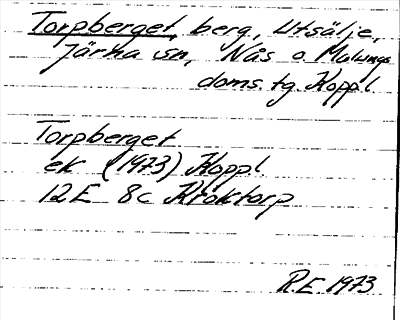 Torpberget, berg, Utsälje,
Järna sn, Nås o. Malungs
doms. tg. Koppl
Torpberget
ek (1973) Koppl
12E 8c Kroktorp
R.E. 1973